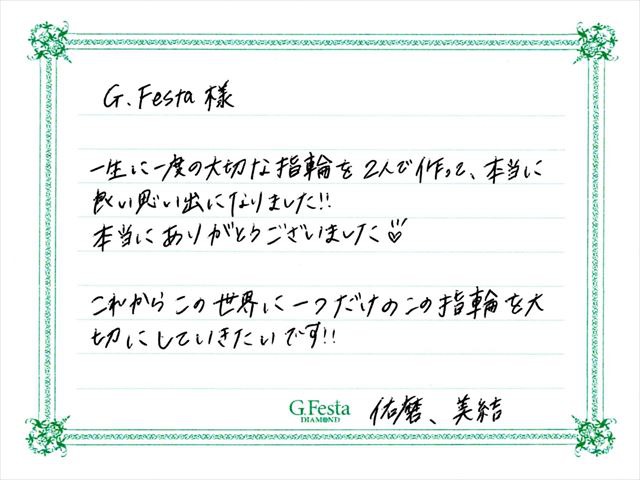 G.Festa 様
一生に一度の大切な指輪を2人で作って、本当に
良い思い出になりました!!
本当にありがとうございました♡
これからこの世界に一つだけのこの指輪を大
切にしていきたいです!!
G.Festa
DIAMOND
佑磨、美結